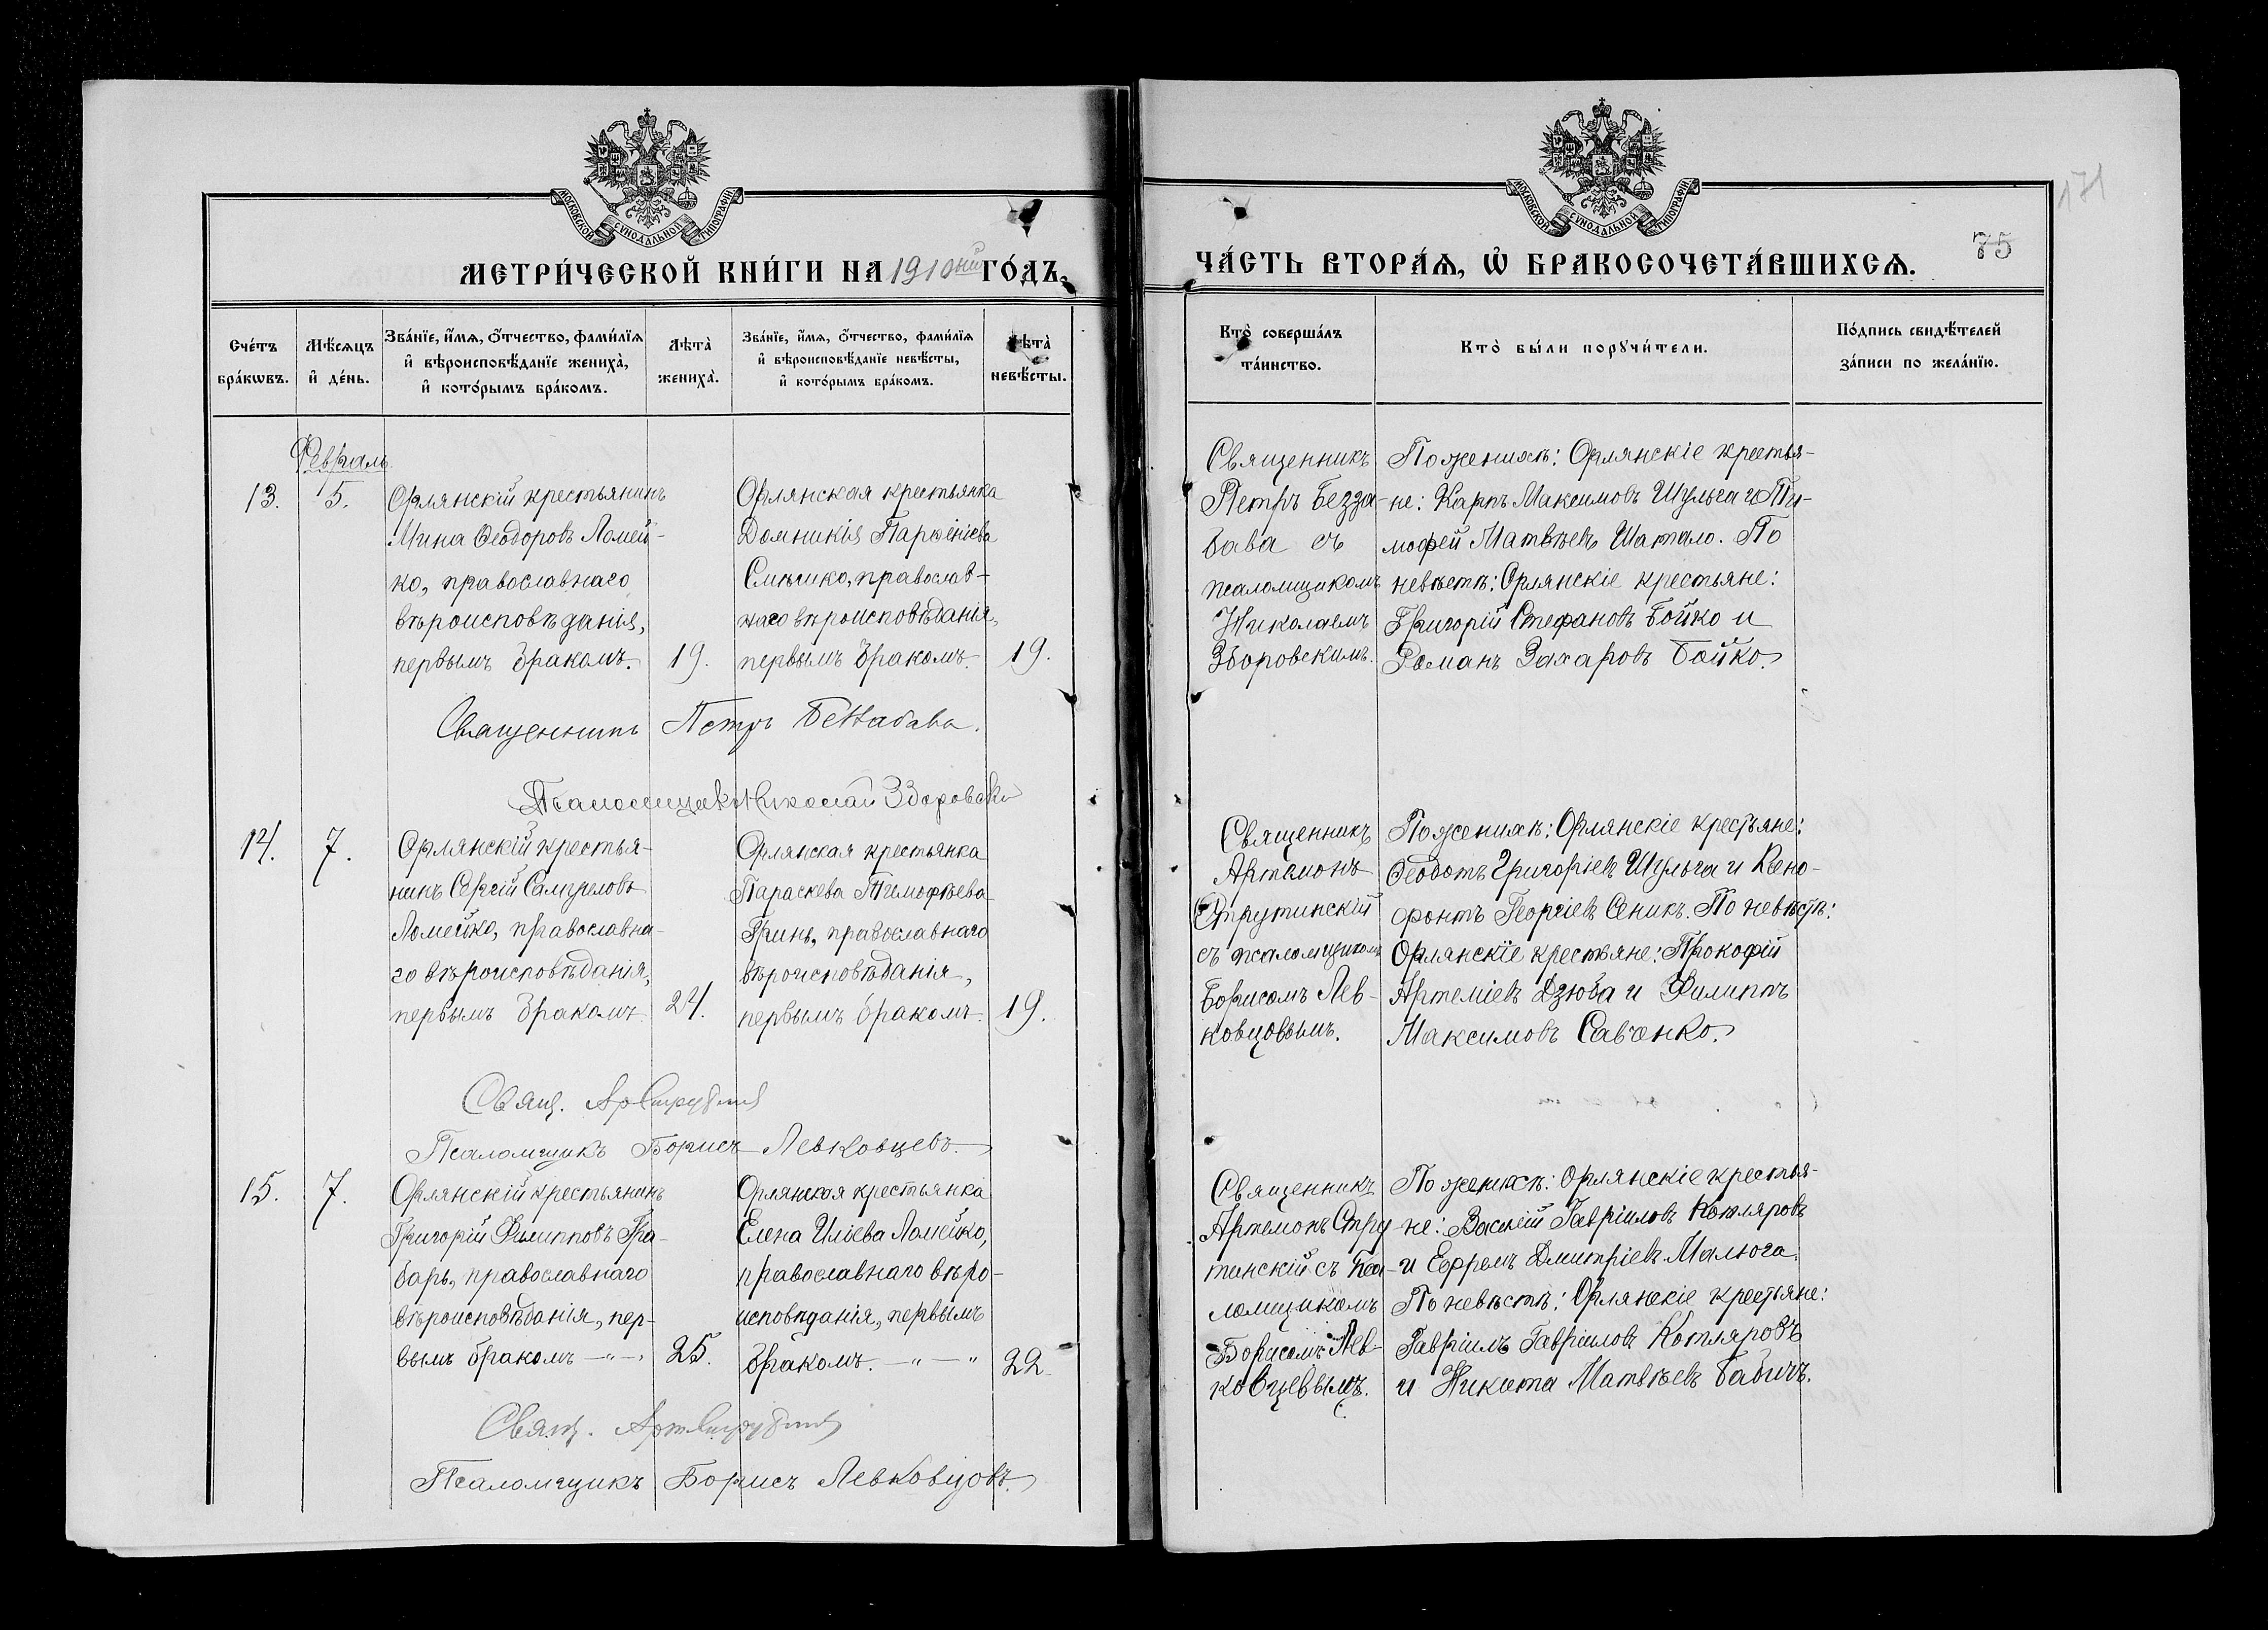 МОСКОВСКОЙ СУНОДАЛЬНОЙ ТИПОГРАФІИ
МЕТРИ́ЧЕСКОЙ КНИ́ГИ НА 1910ый ГО́ДЪ,
Сче́тъ бра́кѡвъ.
Мѣ́сяцъ и҆ де́нь.
Зва́нїе, и҆́мѧ, ѻ҆́тчество, фами́лїѧ и҆ вѣроисповѣ́данїе жениха̀, и҆ кото́рымъ бра́комъ.
Лѣта̀ жениха̀.
Зва́нїе, и҆́мѧ, ѻ҆́тчество, фами́лїѧ и҆ вѣроисповѣ́данїе невѣ́сты, и҆ кото́рымъ бра́комъ.
Лѣта̀ невѣ́сты.
Февраль
13.
5.
Орлянскій крестьянинъ
Мина Ѳеодоровъ Ломей-
ко, православнаго
вѣроисповѣданія,
первымъ бракомъ.
19.
Орлянская крестьянка
Домникія Парѳеніева
Смѣчико, православ-
наго вѣроисповѣданія,
первымъ бракомъ.
19.
Священникъ Петръ Беззабава.
Псаломщикъ Николай Зборовскі
14.
7.
Орлянскій крестья-
нинъ Сергій Самуиловъ
Ломейко, православна-
го вѣроисповѣданія,
первымъ бракомъ
24.
Орлянская крестьянка
Параскева Тимофѣева
Гринь, православнаго
вѣроисповѣданія,
первымъ бракомъ.
19.
Свящ. Ар Струтинскій
Псаломщикъ Борисъ Левковцевъ.
15.
7.
Орлянскій крестьянинъ
Григорій Филипповъ Гра-
барь, православнаго
вѣроисповѣданія, пер-
вымъ бракомъ —"—
25.
Орлянская крестьянка
Елена Иліева Ломейко,
православнаго вѣро-
исповѣданія, первымъ
бракомъ. —"—"
22
Свящ. Арт Струтинскій
Псаломщикъ Борисъ Левковцовъ.
171
МОСКОВСКОЙ СУНОДАЛЬНОЙ ТИПОГРАФІИ
ЧА́СТЬ ВТОРА́Ѧ, Ѡ҆ БРАКОСОЧЕТА́ВШИХСѦ.
75
Кто̀ соверша́лъ та́инство.
Кто̀ бы́ли порꙋчи́тели.
По́дпись свидѣ́телей за́писи по жела́нїю.
Священникъ
Петръ Безза-
бава съ
псаломщикомъ
Николаемъ
Зборовскимъ.
По женихѣ: Орлянскіе крестья-
не: Карпъ Максимовъ Шульга и Ти-
мофей Матвѣевъ Шатало. По
невѣстѣ: Орлянскіе крестьяне:
Григорій Стефановъ Бойко и
Романъ Захаровъ Бойко.
Священникъ
Артемонъ
Струтинскій
съ псаломщикомъ
Борисомъ Лев-
ковцовымъ.
По женихѣ: Орлянскіе крестьяне:
Ѳеодотъ Григоріевъ Шульга и Ксено-
фонтъ Георгіевъ Сеникъ. По невѣстѣ:
Орлянскіе крестьяне: Прокофій
Артеміевъ Дзюба и Филиппъ
Максимовъ Савенко.
Священникъ
Артемонъ Стру-
тинскій съ Пса-
ломщикомъ
Борисомъ Лев-
ковцевымъ.
По женихѣ: Орлянскіе крестья-
не: Василій Гавріиловъ Котляровъ
и Ефремъ Дмитріевъ Малюга.
По невѣстѣ: Орлянскіе крестьяне:
Гавріилъ Гавріиловъ Котляровъ
и Никита Матвѣевъ Бабичъ.